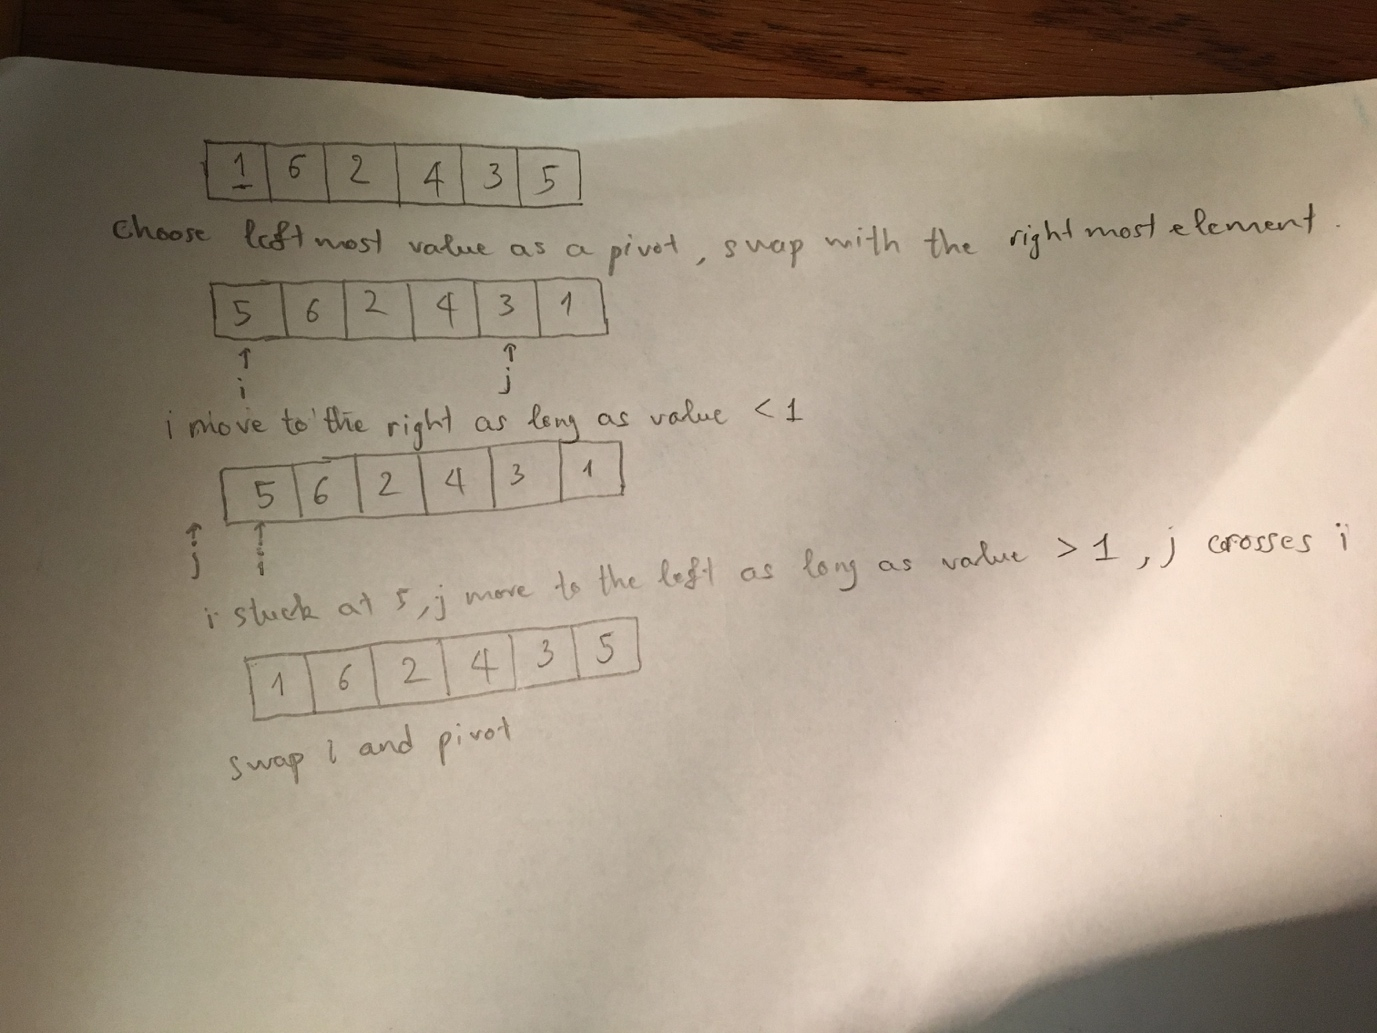 1 6 2 4 3 5
Choose left most value as a pivot, swap with the right most element.
5 6 2 4 3 1
i j
i move to the right as long as value < 1
5 6 2 4 3 1
j i
i stuck at 5, j move to the left as long as value > 1, j crosses i
1 6 2 4 3 5
swap i and pivot